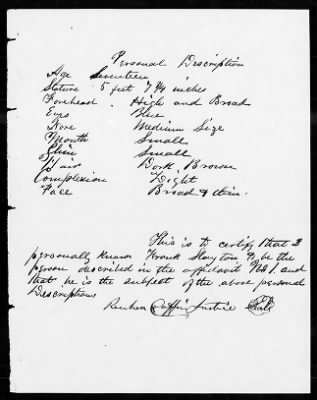 Personal Description
Age Seventeen
Stature 5 feet 7 3/4 inches
Forehead High and Broad
Eyes Blue
Nose Medium Size
Mouth Small
Chin Small
Hair Dark Brown
Complexion Light
Face Broad & thin.
This is to certify that I
personally know Frank Slayton to be the
person described in the affidavit No 1. and
that he is the subject of the above personal
Description
Reuben Griffin Justice